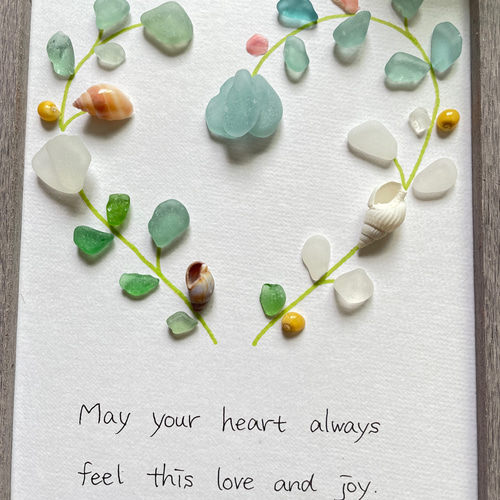 May your heart always
feel this love and joy.